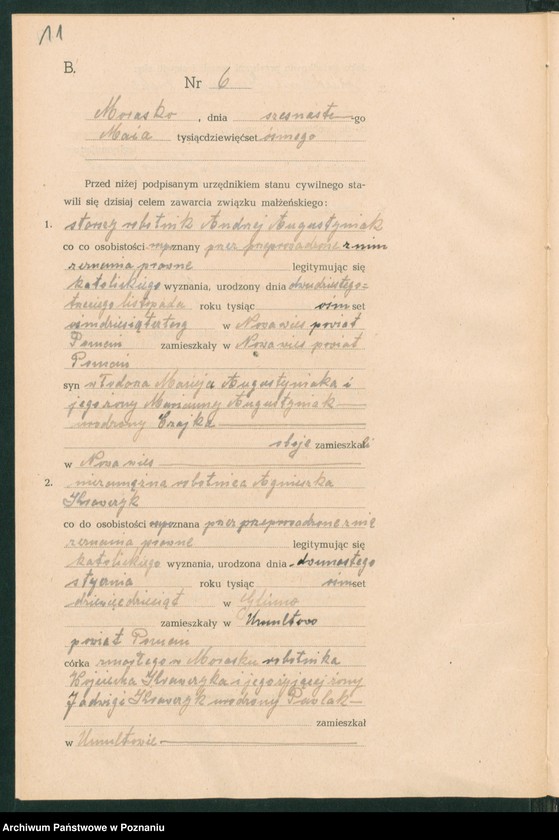 11
B.
Nr 6
Morasko, dnia szesnastego
Maia tysiącdziewięćset ósmego
Przed niżej podpisanym urzędnikiem stanu cywilnego sta-
wili się dzisiaj celem zawarcia związku małżeńskiego:
1. starszy robotnik Andrzej Augustyniak
co co osobistości znany przez przeprowadzone z nim
zeznania prawne legitymując się
katolickiego wyznania, urodzony dnia dwudziestego-
trzeciego listopada roku tysiąc ośmset
w Nowawieś powiat
Poznań zamieszkały w Nowawieś powiat
Poznań
syn Augustyniaka i
jego żony Marianny Augustyniak
urodzony Czajka
zamieszkali
w Nowawieś
2. niezamężna robotnica Agnieszka
Ksawerzyk
co do osobistości znana przez przeprowadzone z nię
zeznania prawne legitymując się
katolickiego wyznania, urodzona dnia dwunastego
stycznia roku tysiąc ośmset
dziewięćdziesiąt w Glinno
zamieszkały w Umultowo
powiat Poznań
córka zmarłego w Morasku robotnika
Wojciecha Ksawerzyka i jego żyjącej żony
Jadwigi Ksawerzyk urodzony Pawlak
zamieszkał
w Umultowie
Archiwum Państwowe w Poznaniu